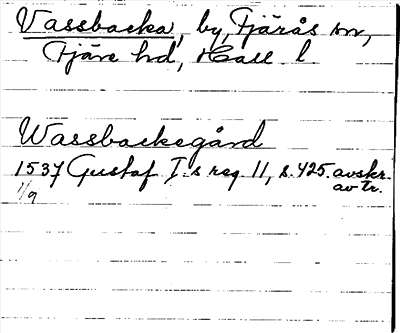 Vassbacka, by, Fjärås sn,
Fjäre hd, Hall. l.
Wassbackegård
1537 Gustaf I:s reg. 11, s. 425. avskr.
1/9 av tr.